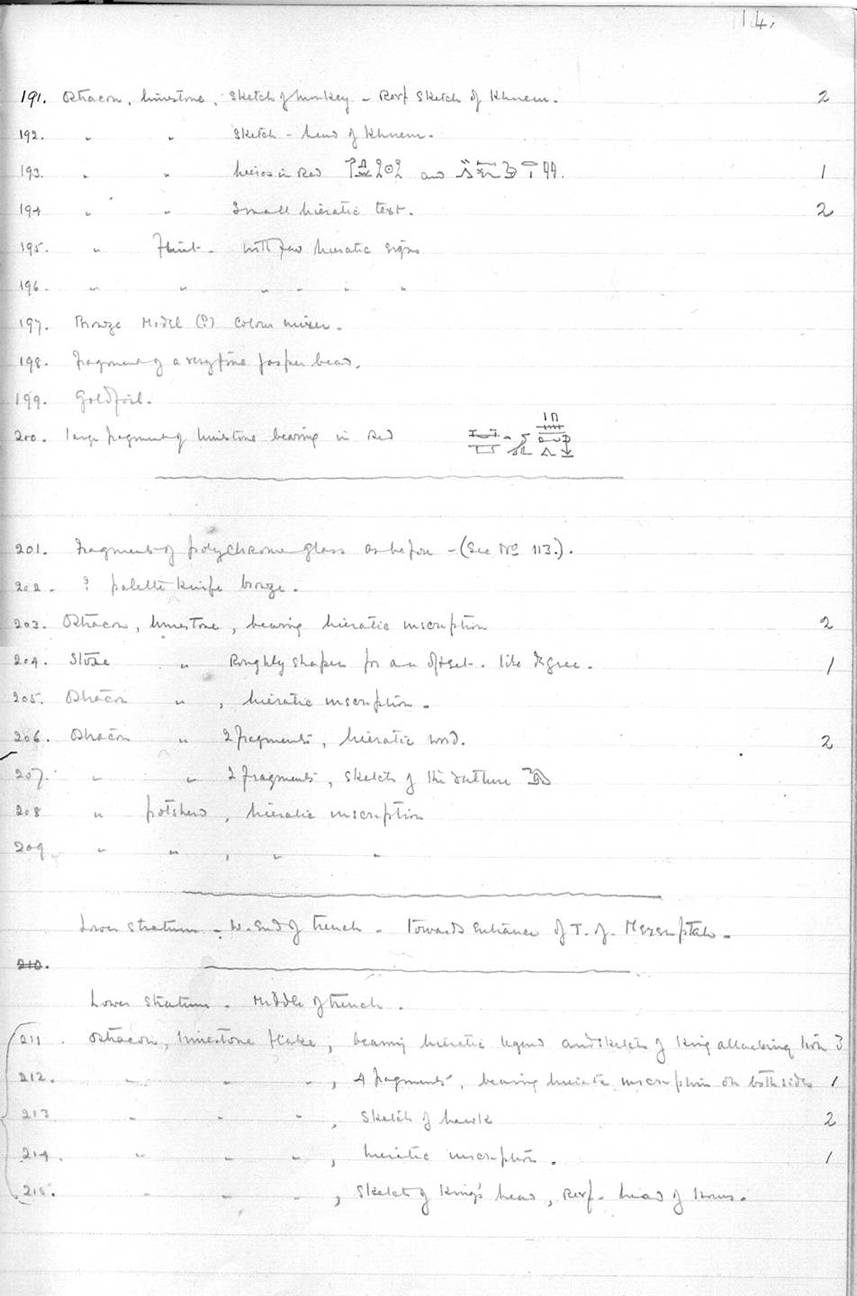 14.
191. Ostracon, limestone, Sketch of monkey - Rev: Sketch of Khnem. 2
192. " " Sketch - head of Khnem.
193. " " hieros in Red and 1
194 " " Small hieratic text. 2
195. " Flint - with few hieratic signs
196. " " " " " "
197. Bronze Model (?) Colour mixer.
198. Fragment of a very fine Jasper bead.
199. Gold foil.
200. large fragment of limestone bearing in Red
201. Fragment of polychrome glass as before - (See No 113.).
202. ? palette knife bronze.
203. Ostracon, limestone, bearing hieratic inscription 2
204. Stone " Roughly shaped for an 1
205. Ostracon " , hieratic inscription.
206. Ostracon " 2 fragments, hieratic word. 2
207. " " 2 fragments, sketch of the
208 " potsherd, hieratic inscription
209 " " , " "
Lower Stratum - W. End of trench - Towards Entrance of T. of Merenptah -
210.
Lower Stratum - Middle of trench.
211. Ostracon, limestone flake, bearing hieratic legend and sketch of King attacking lion 3
212. " " " , 4 fragments, bearing hieratic inscription on both sides 1
213 " " " , Sketch of hawk 2
214. " " " , hieratic inscription. 1
215. " " " , Sketch of King's head, Rev: - head of Horus.